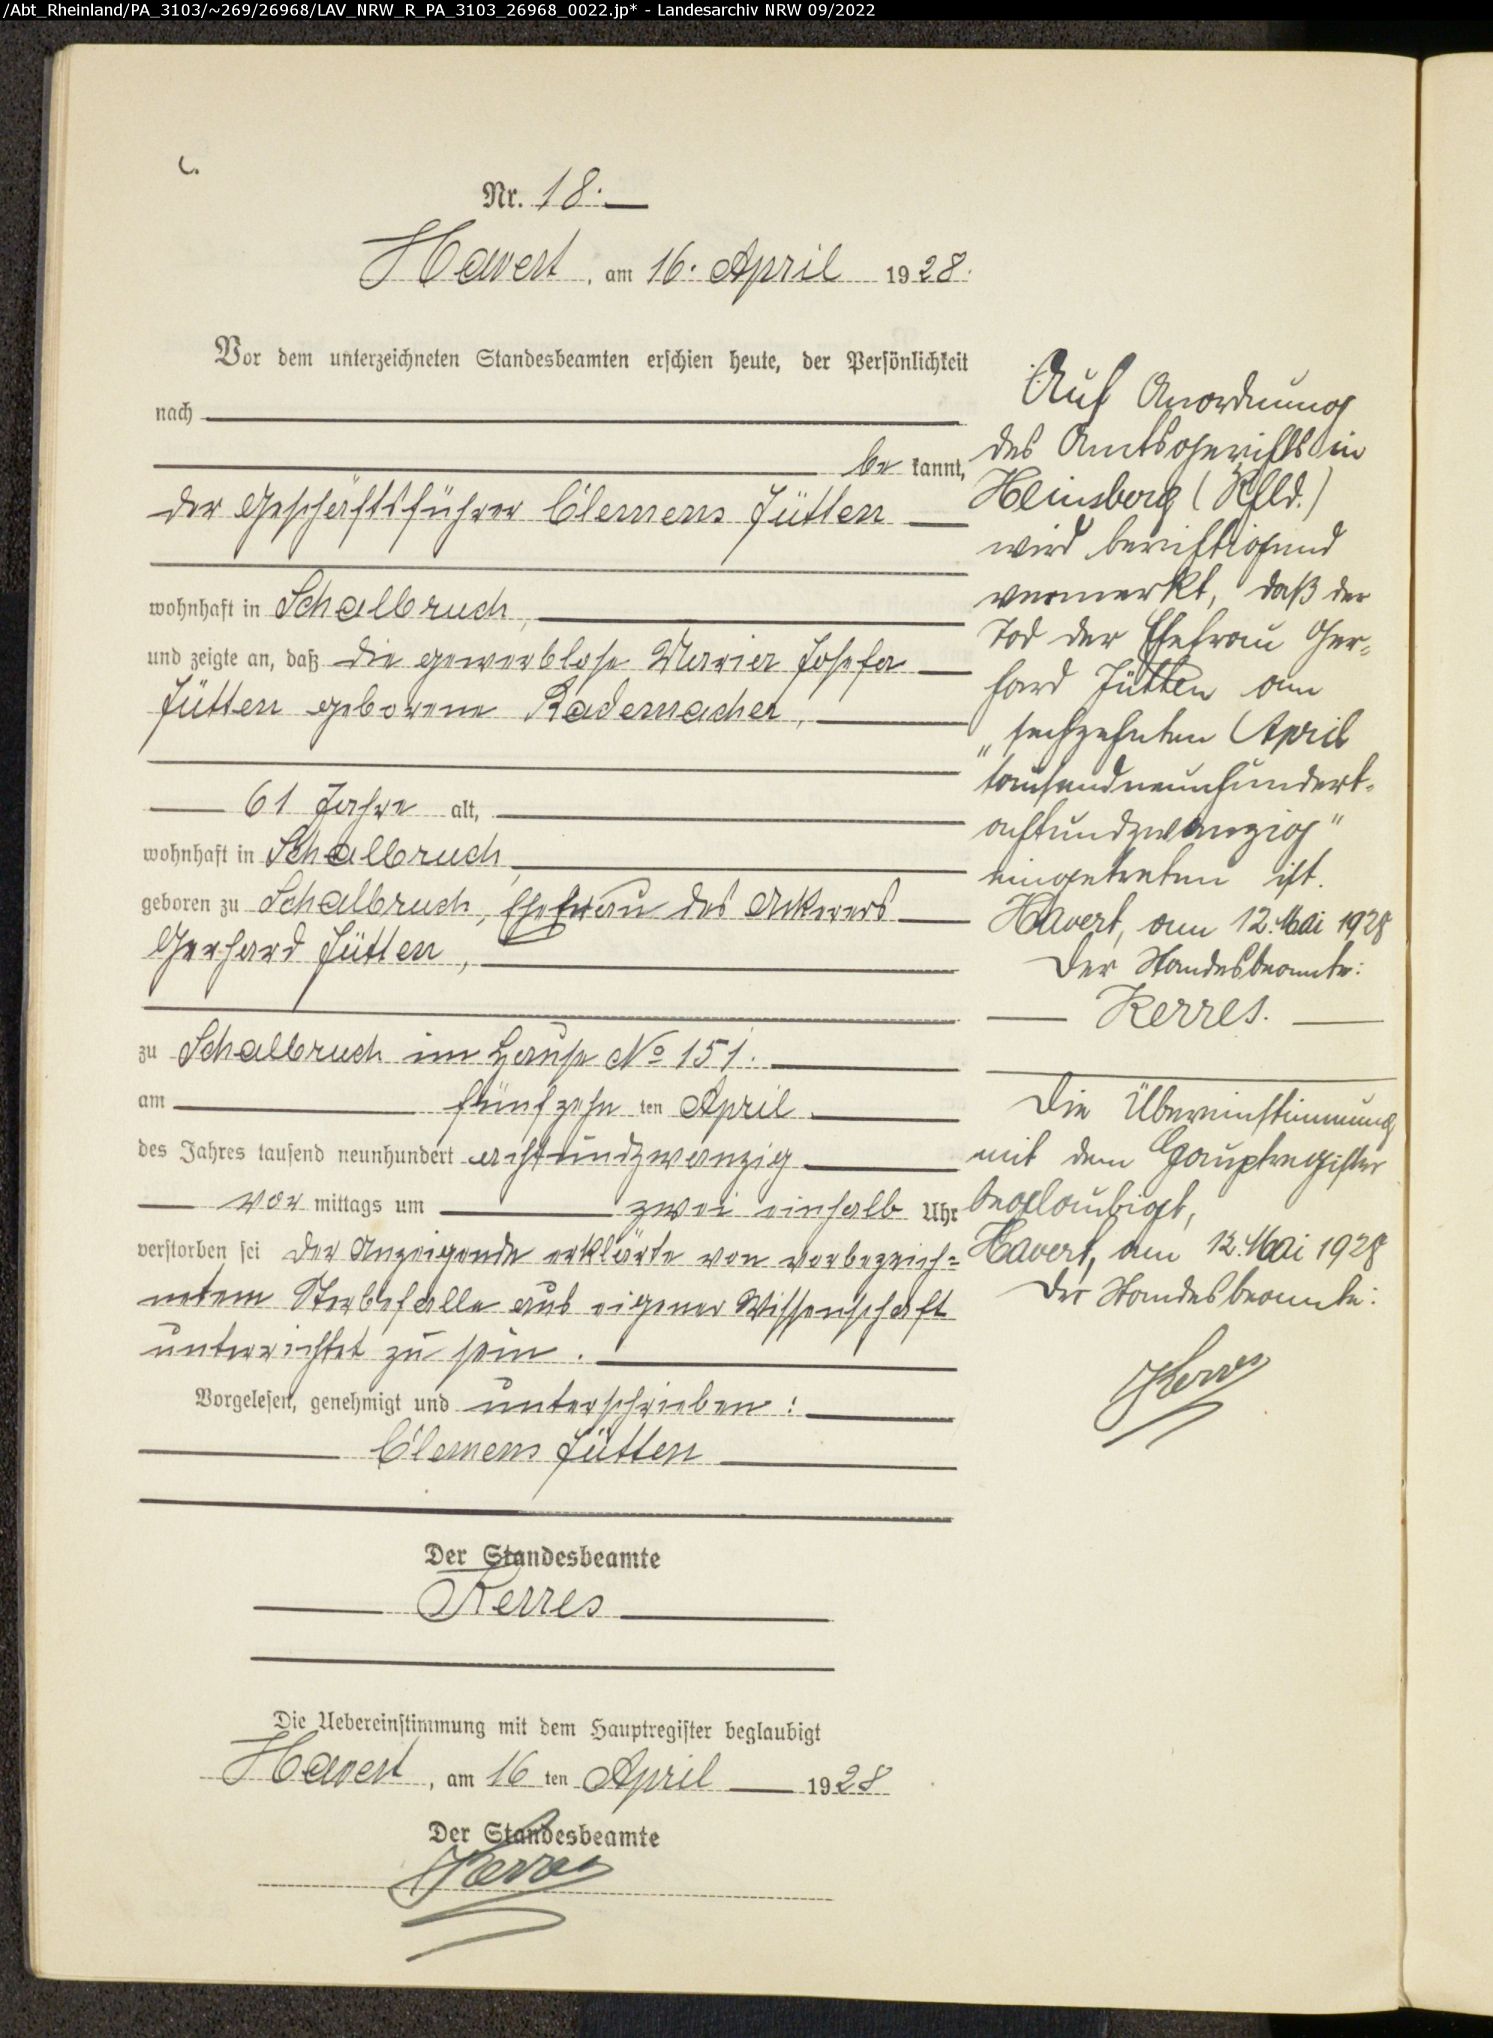 /Abt_Rheinland/PA_3103/~269/26968/LAV_NRW_R_PA_3103_26968_0022.jp* - Landesarchiv NRW 09/2022
C.
Nr. 18.
Havert, am 16. April 1928.
Vor dem unterzeichneten Standesbeamten erschien heute, der Persönlichkeit
nach
be kannt,
der Geschäftsführer Clemens Jütten
wohnhaft in Schalbruch,
und zeigte an, daß die gewerblose Maria Josefa
Jütten geborene Rademacher,
61 Jahre alt,
wohnhaft in Schalbruch,
geboren zu Schalbruch, Ehefrau des Ackerers
Gerhard Jütten,
zu Schalbruch im Hause No 151.
am fünfzehn ten April
des Jahres tausend neunhundert achtundzwanzig
vor mittags um zwei einhalb Uhr
verstorben sei Der Anzeigende erklärte von vorbezeich=
netem Sterbefalle aus eigener Wissenschaft
unterrichtet zu sein.
Vorgelesen, genehmigt und unterschrieben:
Clemens Jütten
Der Standesbeamte
Kerres
Die Uebereinstimmung mit dem Hauptregister beglaubigt
Havert, am 16 ten April 1928
Der Standesbeamte
Kerres
Auf Anordnung
des Amtsgerichts in
Heinsberg (Rhld.)
wird berichtigend
vermerkt, daß der
Tod der Ehefrau Ger=
hard Jütten am
„sechzehnten April
tausendneunhundert=
achtundzwanzig"
eingetreten ist.
Havert, am 12. Mai 1928
Der Standesbeamte:
Kerres.
Die Übereinstimmung
mit dem Hauptregister
beglaubigt,
Havert, am 12. Mai 1928
Der Standesbeamte:
Kerres